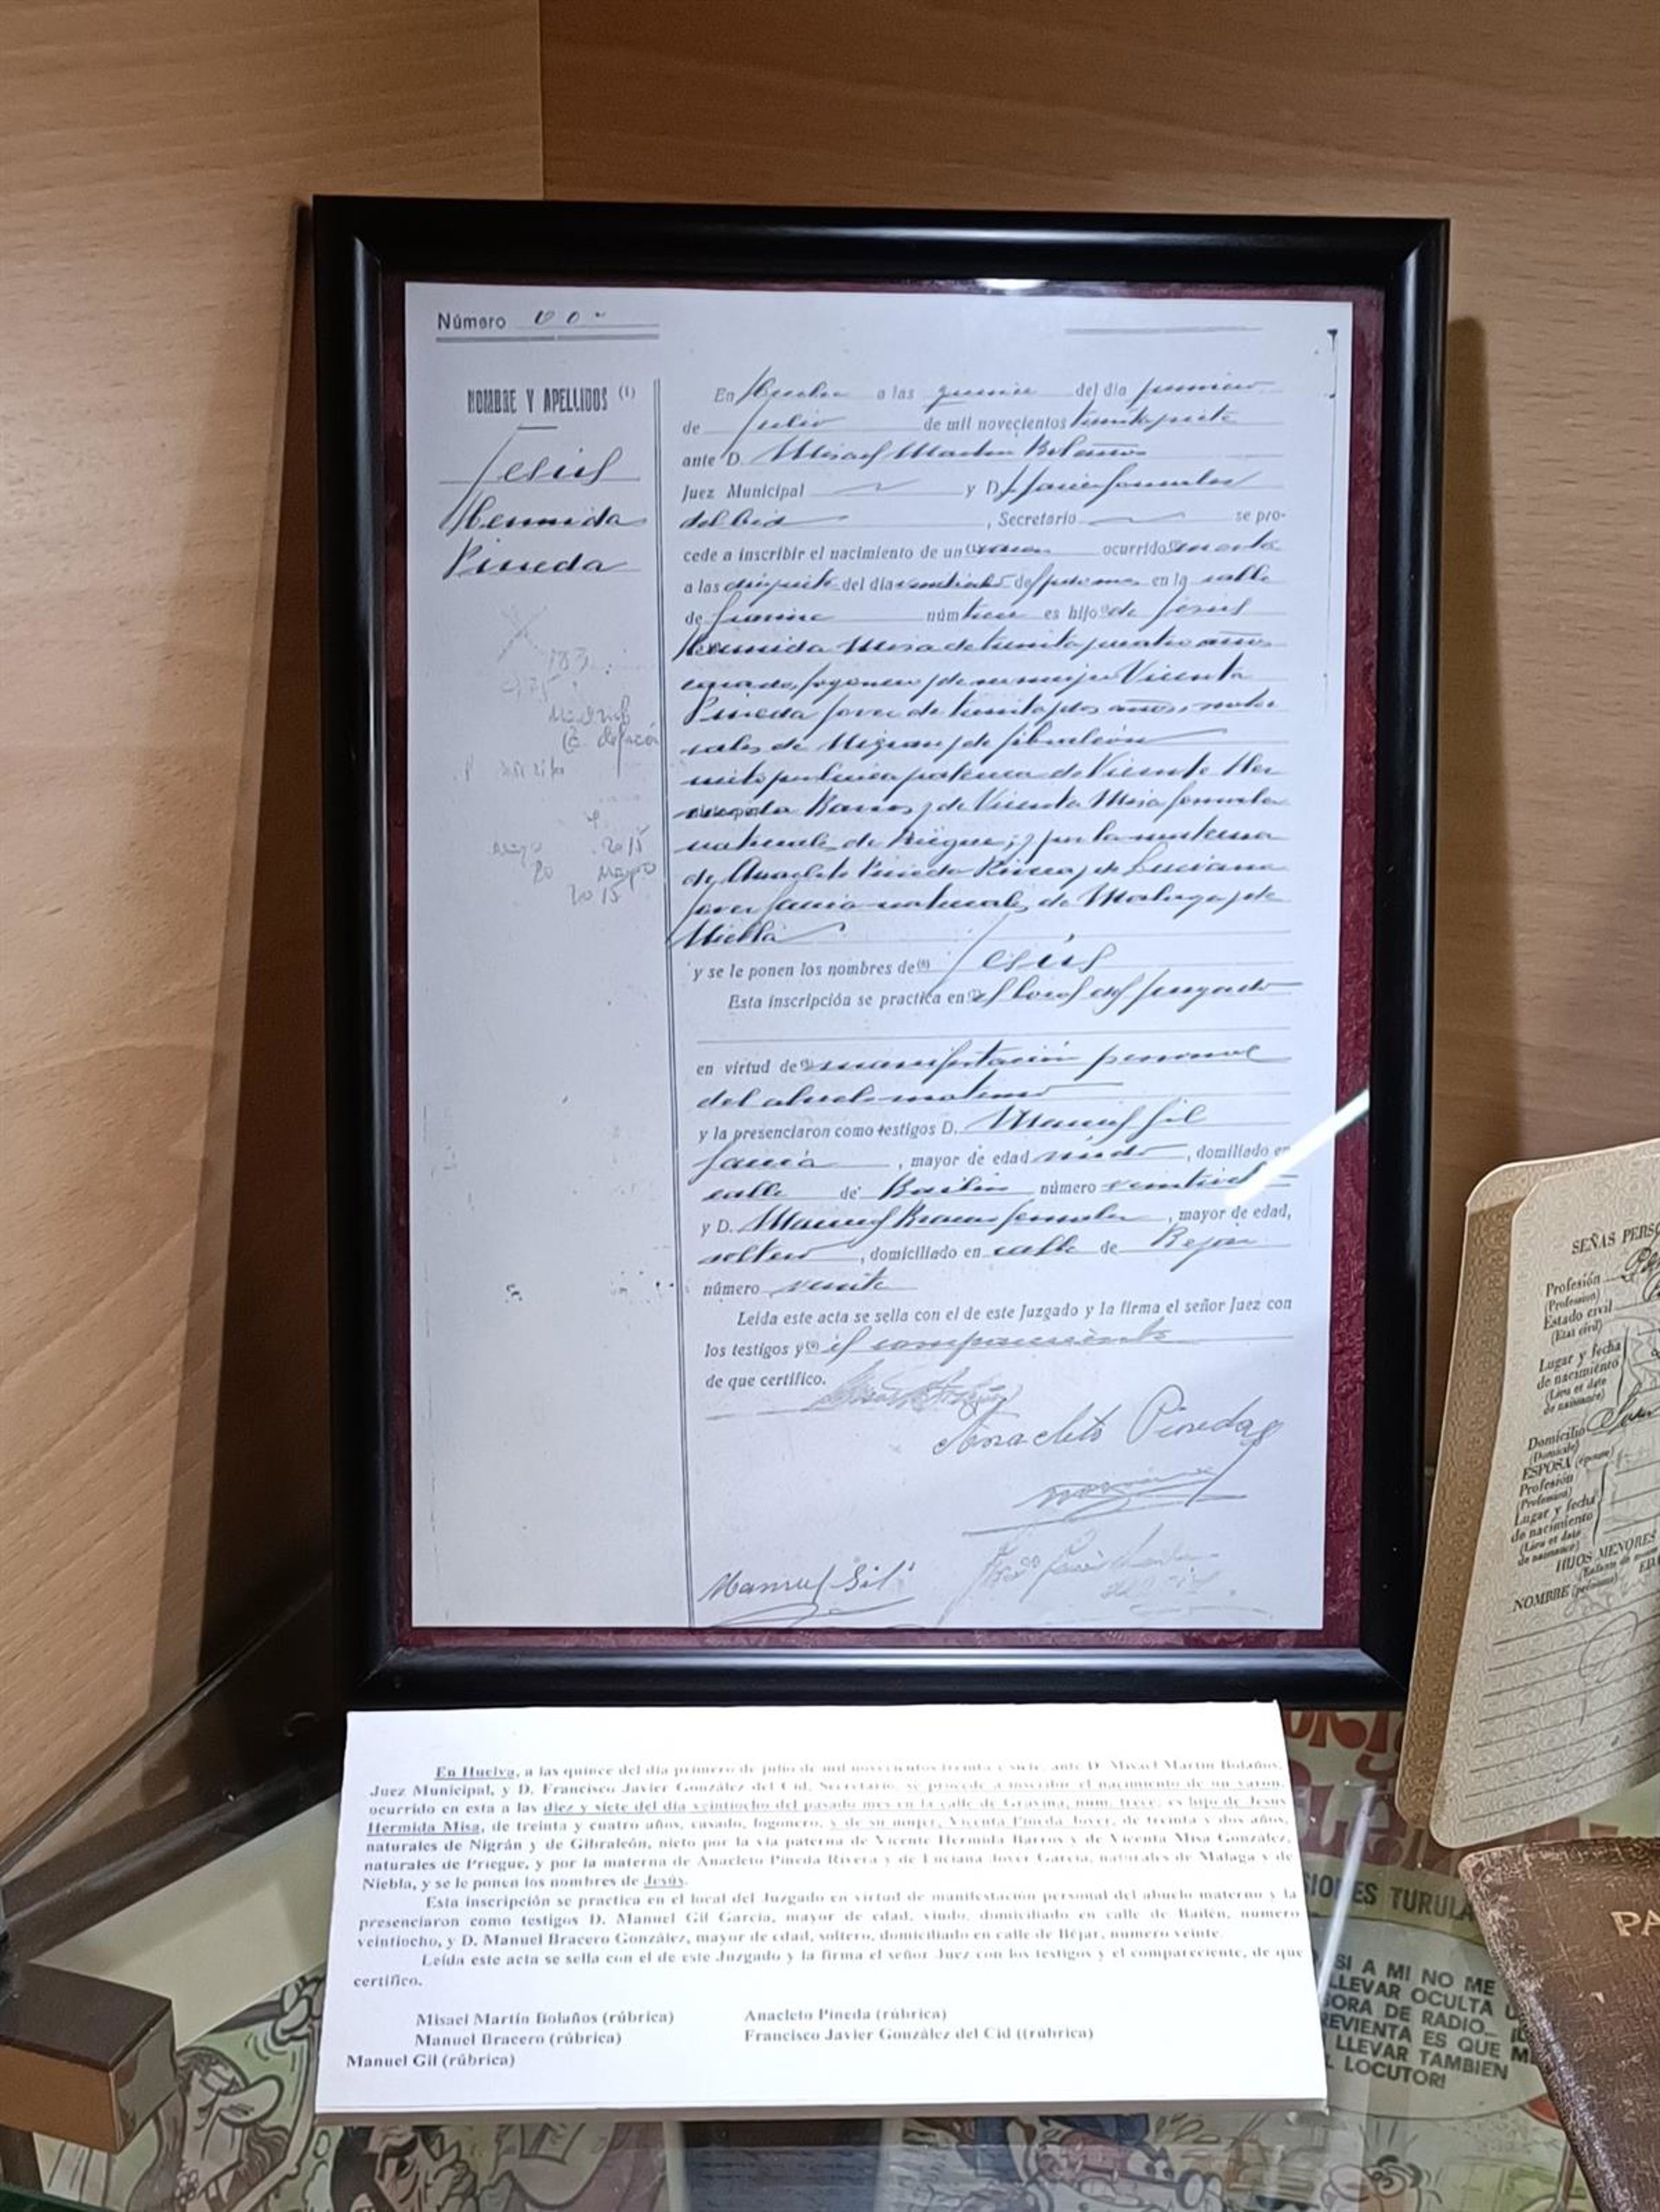 Número
NOMBRE Y APELLIDOS (1)
Jesús
Hermida
Pineda
Madrid
2015
20 Mayo
2015
En Huelva a las quince del día primero
de julio de mil novecientos treinta y siete
ante D. Misael Martin Bolaños
Juez Municipal y D. Fº Javier Gonzalez
del Cid , Secretario se pro-
cede a inscribir el nacimiento de un varon ocurrido en esta
a las diez y siete del dia veintiocho del pdo. mes en la calle
de Gravina núm trece es hijo de Jesús
Hermida Misa de treinta y cuatro años
casado, fogonero y de su mujer Vicenta
Pineda Jover de treinta y dos años, natu
rales de Nigran y de Gibraleón
nieto por linea paterna de Vicente Her
mida Barros y de Vicenta Misa Gonzalez
naturales de Priegue; y por la materna
de Anacleto Pineda Rivera y de Luciana
Jover Garcia naturales de Malaga y de
Niebla
y se le ponen los nombres de Jesús
Esta inscripción se practica en el local del Juzgado
en virtud de manifestación personal
del abuelo materno
y la presenciaron como testigos D. Manuel Gil
Garcia , mayor de edad viudo , domiliado en
calle de Bailén número veintiocho
y D. Manuel Bracero Gonzalez , mayor de edad,
soltero , domiciliado en calle de Bejar
número veinte
Leída este acta se sella con el de este Juzgado y la firma el señor Juez con
los testigos y el compareciente
de que certifico.
Anacleto Pineda
Manuel Gil
En Huelva, a las quince del día primero de julio de mil novecientos treinta y siete, ante D. Misael Martín Bolaños,
Juez Municipal, y D. Francisco Javier González del Cid, Secretario, se procede a inscribir el nacimiento de un varón,
ocurrido en esta a las diez y siete del día veintiocho del pasado mes en la calle de Gravina, núm. trece; es hijo de Jesús
Hermida Misa, de treinta y cuatro años, casado, fogonero, y de su mujer, Vicenta Pineda Jover, de treinta y dos años,
naturales de Nigrán y de Gibraleón, nieto por la vía paterna de Vicente Hermida Barros y de Vicenta Misa González,
naturales de Priegue, y por la materna de Anacleto Pineda Rivera y de Luciana Jover García, naturales de Málaga y de
Niebla, y se le ponen los nombres de Jesús.
Esta inscripción se practica en el local del Juzgado en virtud de manifestación personal del abuelo materno y la
presenciaron como testigos D. Manuel Gil García, mayor de edad, viudo, domiciliado en calle de Bailén, numero
veintiocho, y D. Manuel Bracero González, mayor de edad, soltero, domiciliado en calle de Béjar, numero veinte.
Leída este acta se sella con el de este Juzgado y la firma el señor Juez con los testigos y el compareciente, de que
certifico.
Misael Martín Bolaños (rúbrica) Anacleto Pineda (rúbrica)
Manuel Bracero (rúbrica) Francisco Javier González del Cid ((rúbrica)
Manuel Gil (rúbrica)
SEÑAS PERSO
Profesión
(Profession)
Estado civil
(Etat civil)
Lugar y fecha
de nacimiento
(Lieu et date
de naissance)
Domicilio
(Domicile)
ESPOSA (épouse)
Profesión
(Profession)
Lugar y fecha
de nacimiento
(Lieu et date
de naissance)
HIJOS MENORES
NOMBRE (prénoms)
PA
SIONES TURULA
SI A MI NO ME
LLEVAR OCULTA
ORA DE RADIO...
REVIENTA ES QUE
LLEVAR TAMBIEN
LOCUTOR!